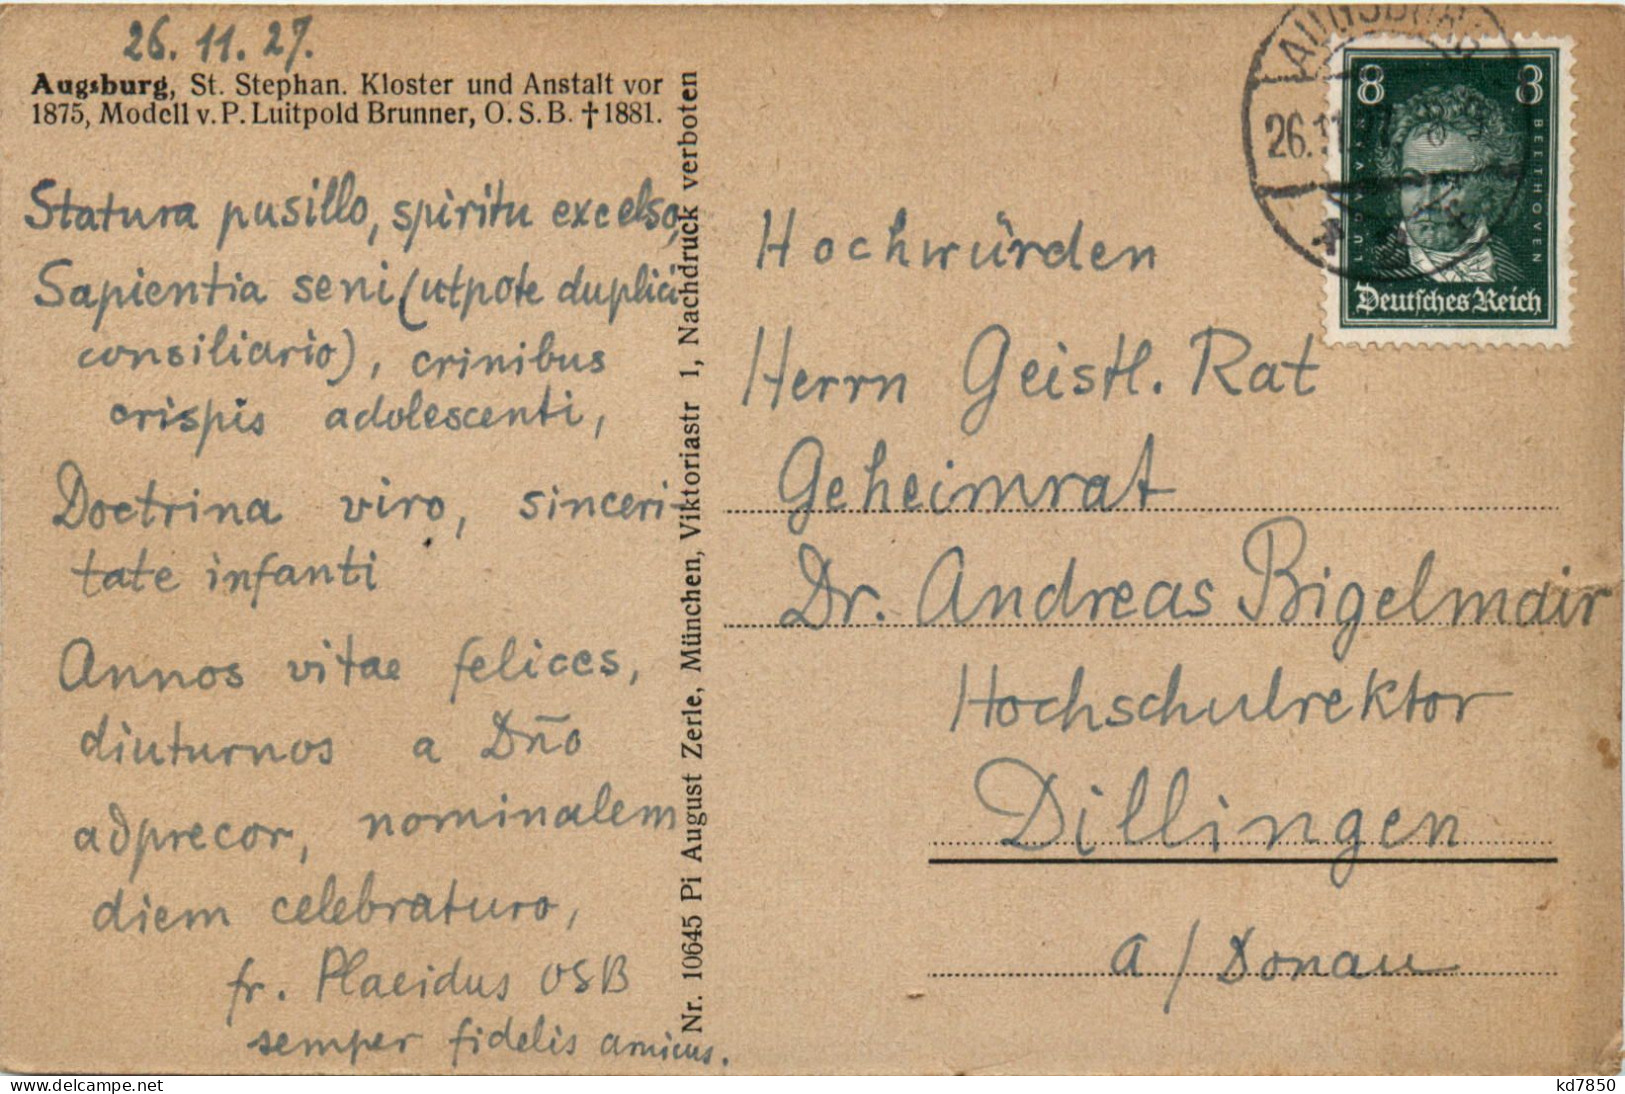 26. 11. 27.
Augsburg, St. Stephan. Kloster und Anstalt vor
1875, Modell v. P. Luitpold Brunner, O. S. B. † 1881.
Statura pusillo, spiritu excelso,
Sapientia seni (utpote duplici
consiliario), crinibus
crispis adolescenti,
Doctrina viro, sinceri-
tate infanti
Annos vitae felices,
diuturnos a Dño
adprecor, nominalem
diem celebraturo,
fr. Placidus OSB
semper fidelis amicus.
Nr. 10645 Pi August Zerle, München, Viktoriastr 1, Nachdruck verboten
AUGSBURG
26.11.
8 8
LUDW. V. BEETHOVEN
Deutsches Reich
Hochwürden
Herrn Geistl. Rat
Geheimrat
Dr. Andreas Bigelmair
Hochschulrektor
Dillingen
a/Donau
www.delcampe.net
kd7850